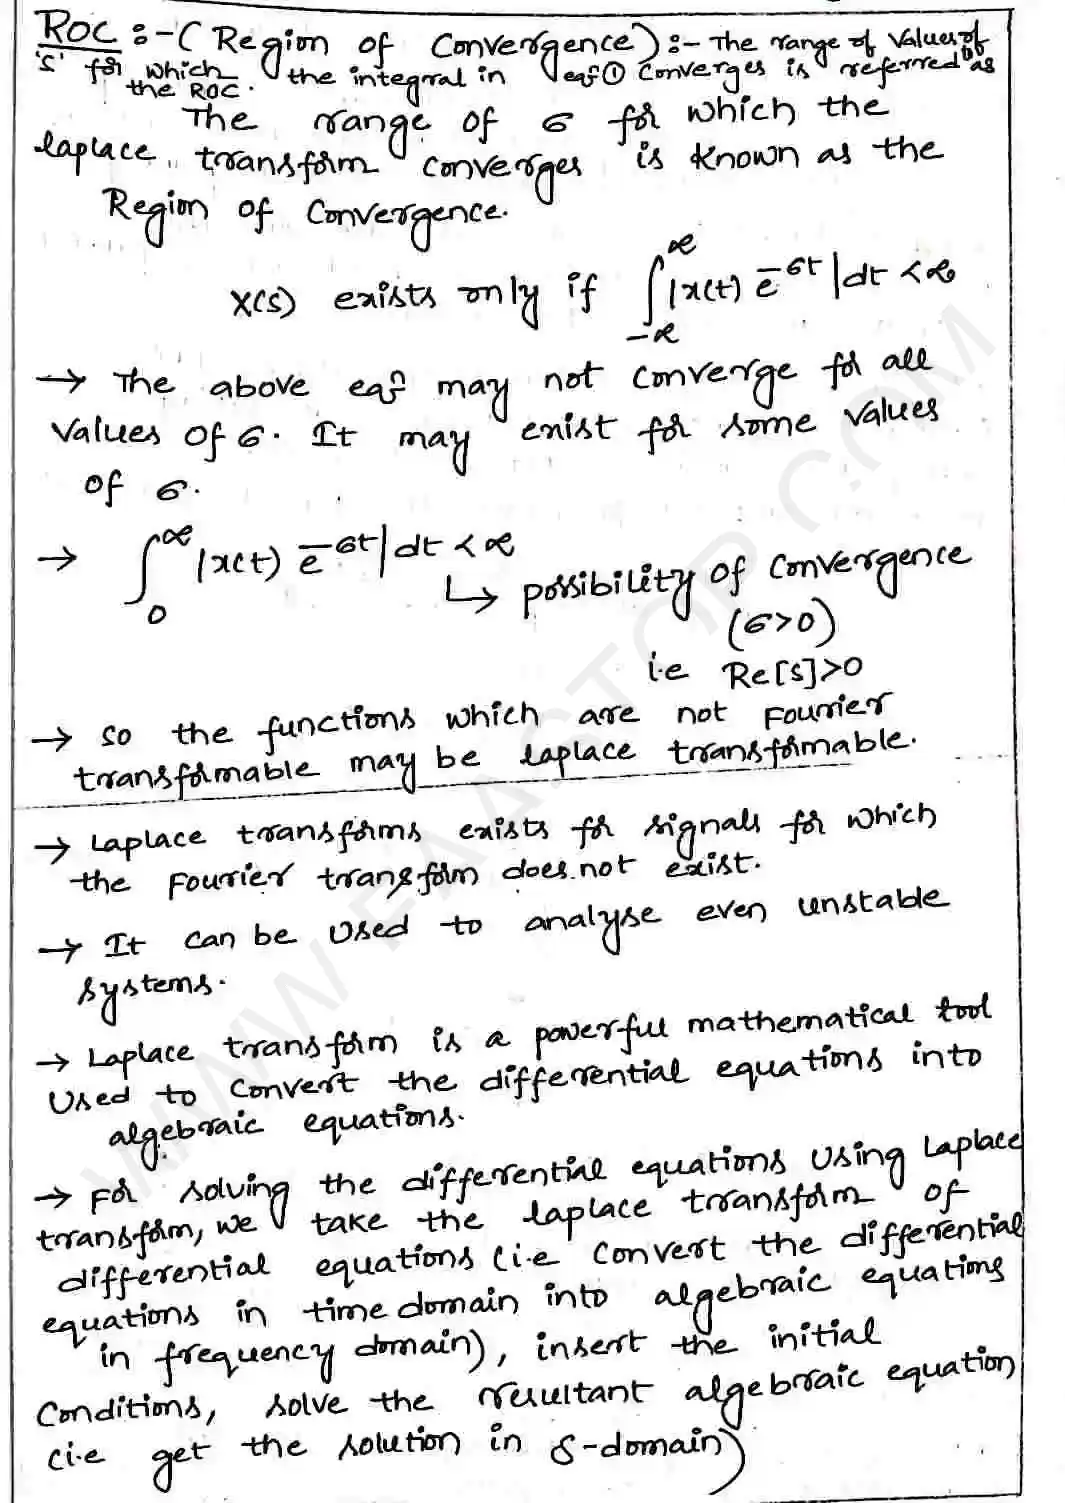 ROC :- (Region of Convergence) :- The range of values of
's' for which the integral in eqn ① converges is referred to as
the ROC.
The range of σ for which the
laplace transform converges is known as the
Region of Convergence.
X(s) exists only if ∫_{-∞}^{∞} |x(t) e^{-σt}| dt < ∞
→ The above eqn may not converge for all
values of σ. It may exist for some values
of σ.
→ ∫_{0}^{∞} |x(t) e^{-σt}| dt < ∞
↳ possibility of convergence
(σ>0)
i.e Re[s]>0
→ so the functions which are not Fourier
transformable may be laplace transformable.
→ Laplace transforms exists for signals for which
the Fourier transform does not exist.
→ It can be used to analyse even unstable
systems.
→ Laplace transform is a powerful mathematical tool
used to convert the differential equations into
algebraic equations.
→ For solving the differential equations using Laplace
transform, we take the laplace transform of
differential equations (i.e convert the differential
equations in time domain into algebraic equations
in frequency domain), insert the initial
Conditions, solve the resultant algebraic equation
(i.e get the solution in s-domain)